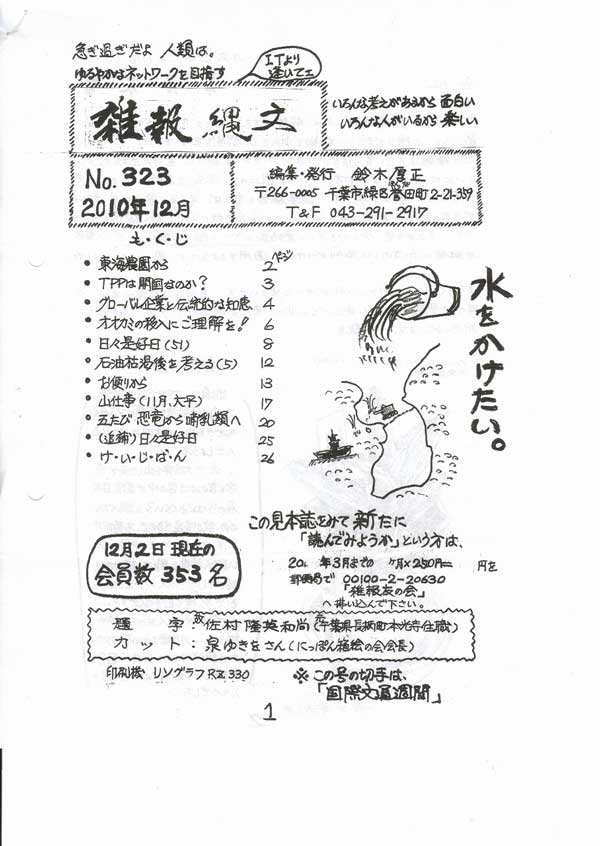 急ぎ過ぎだよ 人類は。
ゆるやかなネットワークを目指す
ITより
逢いてエ
雑報 縄文
いろんな考えがあるから 面白い
いろんな人がいるから 楽しい
No. 323
2010年12月
編集・発行 鈴木厚正
〒266-0005 千葉市緑区誉田町2-21-359
T&F 043-291-2917
も・く・じ
ページ
• 東海農園から 2
• TPPは開国なのか? 3
• グローバル企業と伝統的な知恵 4
• オオカミの移入にご理解を! 6
• 日々是好日(51) 8
• 石油枯渇後を考える(5) 12
• お便りから 13
• 山仕事(11月、大平) 17
• 五たび 恐竜から哺乳類へ 20
• (追録)日々是好日 25
• け・い・じ・ば・ん 26
水をかけたい。
この見本誌をみて 新たに
「読んでみようか」という方は、
20 年3月までの ヶ月×250円= 円を
郵便局で 00100-2-20630
「雑報友の会」
へ払い込んで下さい。
12月2日 現在の
会員数 353 名
題 字:故佐村隆英和尚(元千葉県長柄町本光寺住職)
カット:泉ゆきをさん(にっぽん箱絵の会会長)
印刷機 リソグラフRZ330
※ この号の切手は、
「国際文通週間」
1